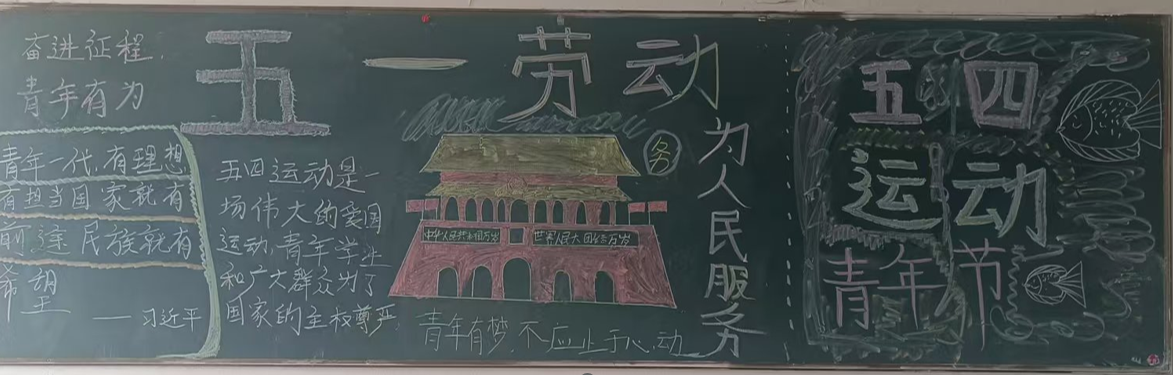 奋进征程,
青年有为
青年一代有理想
有担当国家就有
前途民族就有
希望
——习近平
五一劳动
五四运动是一
场伟大的爱国
运动,青年学生
和广大群众为了
国家的主权尊严
务
中华人民共和国万岁
世界人民大团结万岁
青年有梦,不应止于心动
为人民服务
五四
运动
青年节